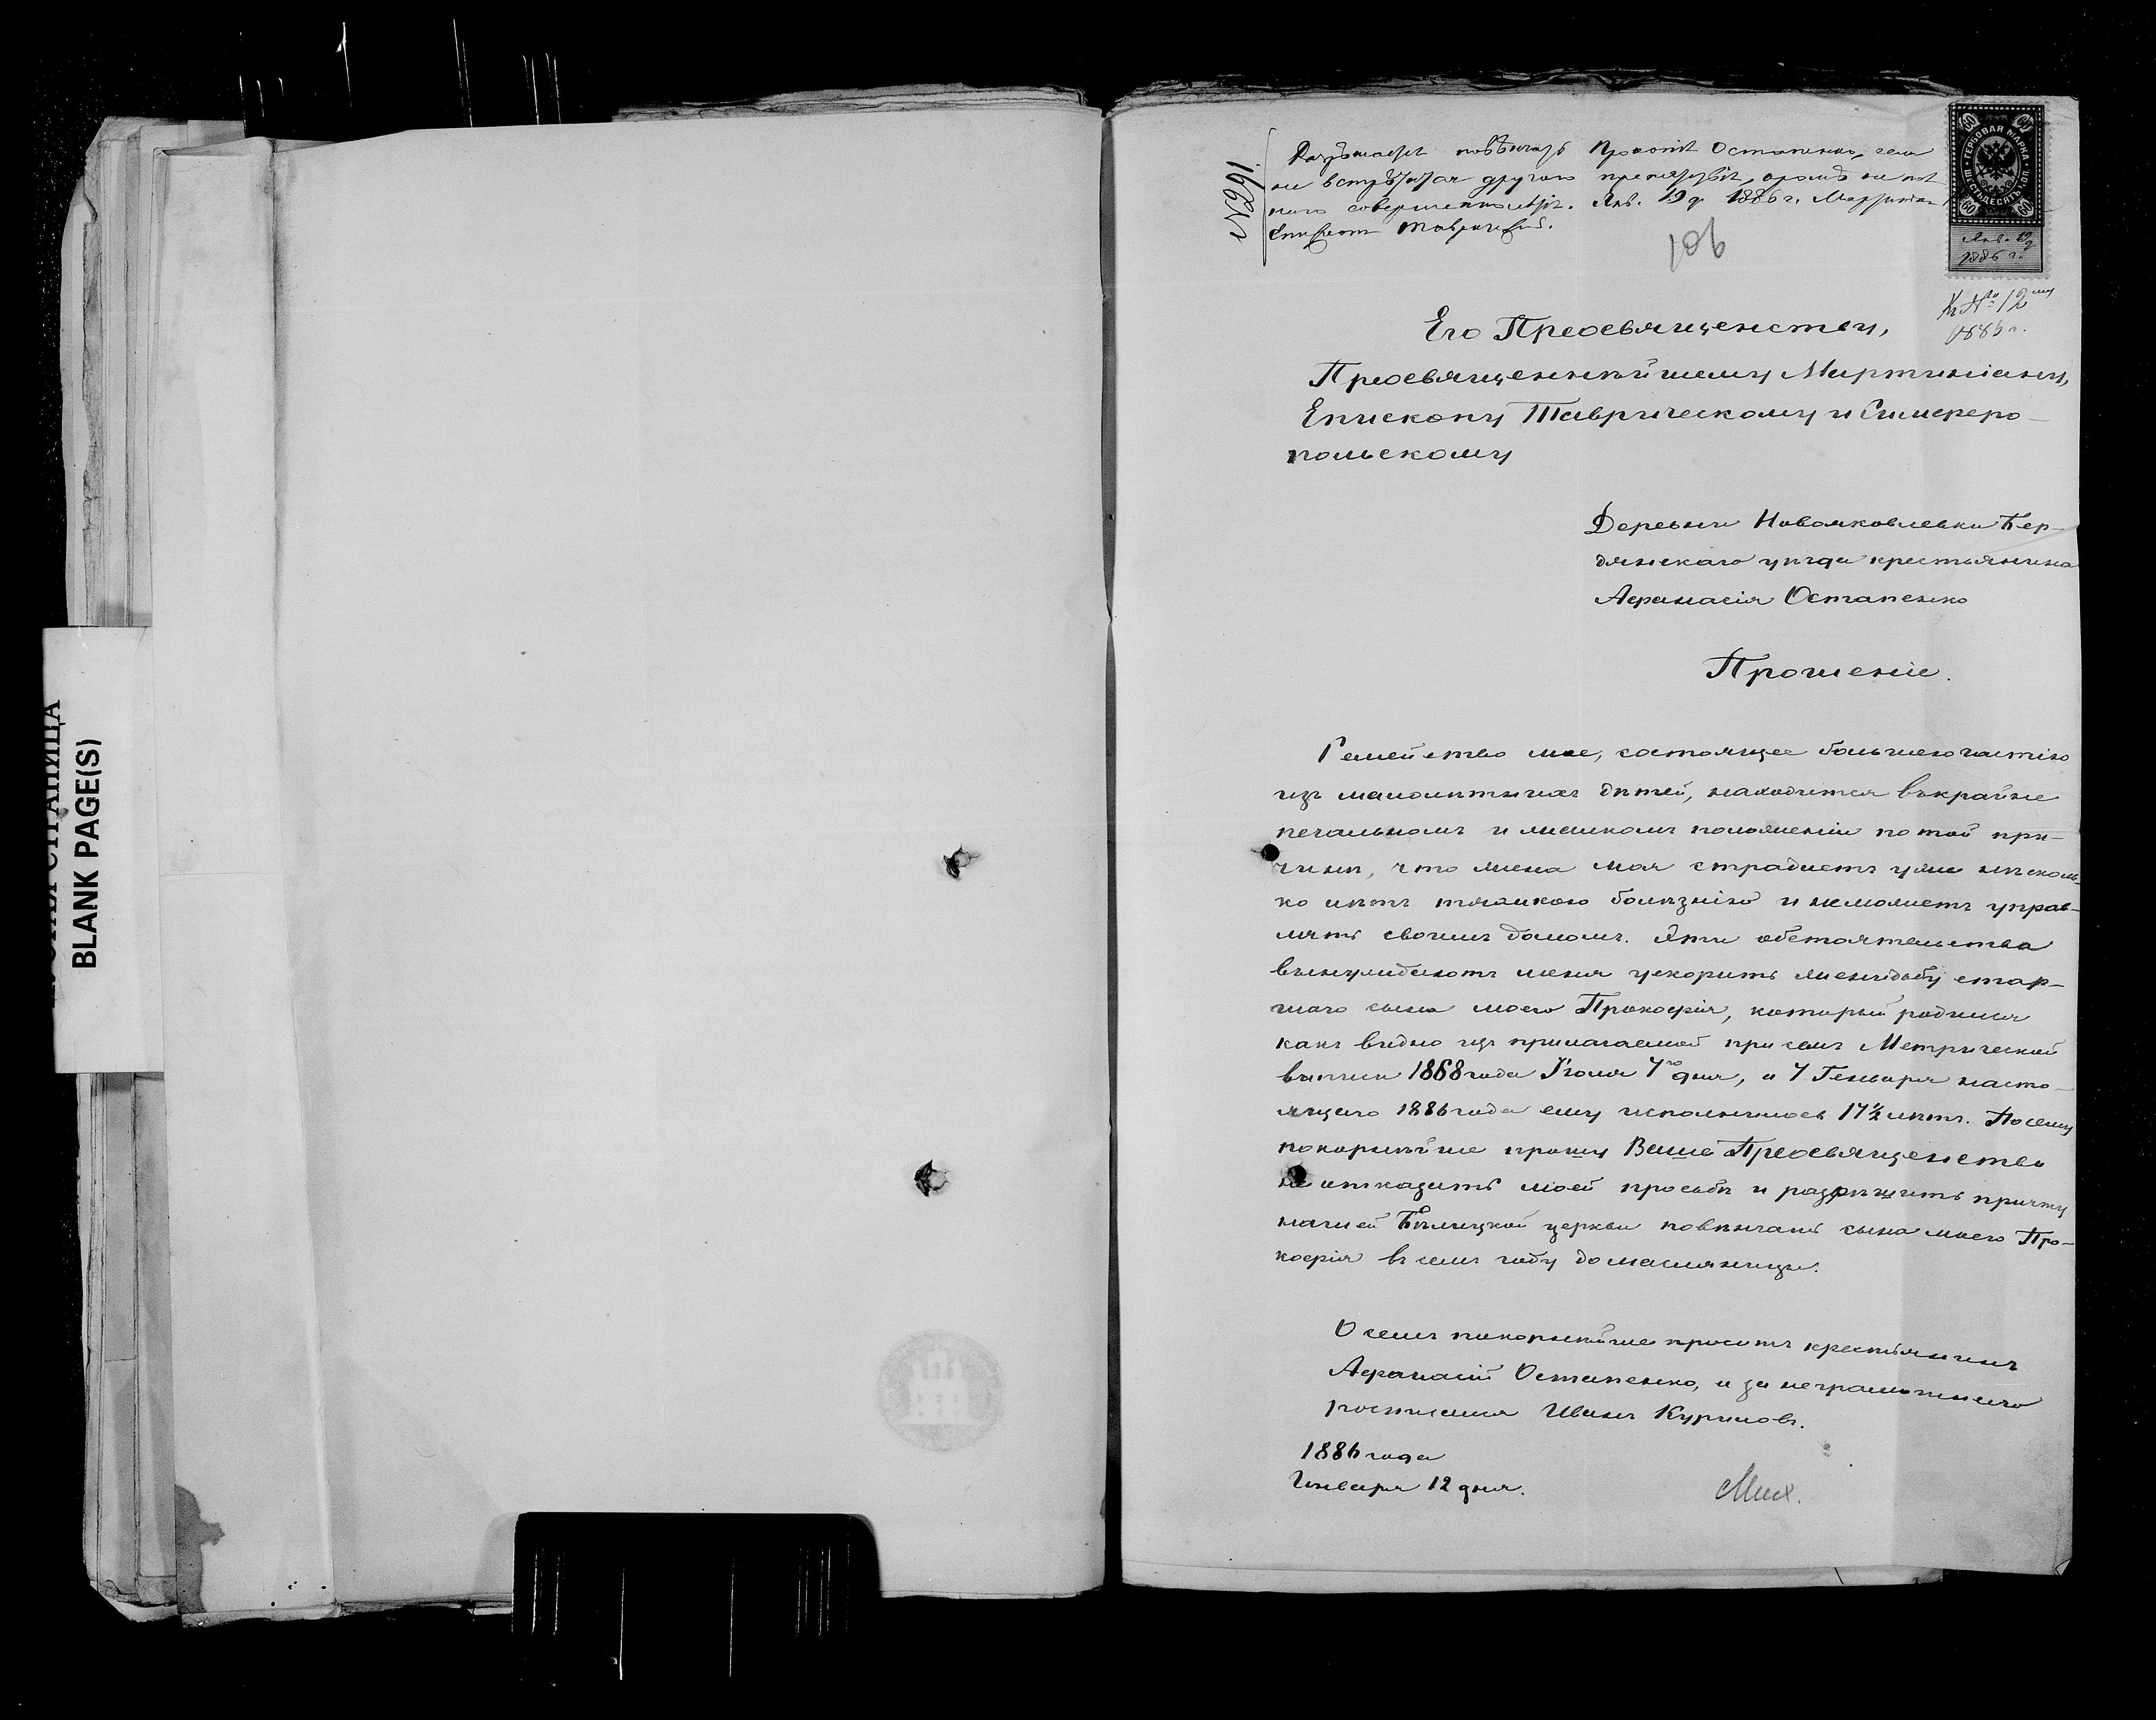 BLANK PAGE(S)
№291.
Разрѣшается повѣнчать Прокопія Остапенко, если
не встрѣтится другихъ препятствій, кромѣ не пол
наго совершеннолѣтія. Янв. 19 д. 1886 г. Мартиніан
Епископ Таврическій.
ГЕРБОВАЯ МАРКА
ШЕСТЬДЕСЯТЪ КОП.
60 60 60 60
Янв. 19 д
1886 г.
106
1886 г.
Его Преосвященству,
Преосвященнѣйшему Мартиніану,
Епископу Таврическому и Симферо-
польскому
Деревни Новояковлевки Бер-
дянскаго уѣзда крестьянина
Афанасія Остапенко
Прошеніе.
Семейство мое, состоящее большею частію
изъ малолѣтнихъ дѣтей, находится въ крайне
печальномъ и жалкомъ положеніи по той при-
чинѣ, что жена моя страдаетъ уже нѣсколь-
ко лѣтъ тяжкою болѣзнію и не можетъ управ-
лять своимъ домомъ. Эти обстоятельства
вынуждаютъ меня ускорить женидьбу стар-
шаго сына моего Прокофія, который родился
какъ видно изъ прилагаемой при семъ Метрической
выписи 1868 года Іюля 7го дня, и 7 Генваря насто-
ящаго 1886 года ему исполнилось 17½ лѣтъ. Посему
покорнѣйше прошу Ваше Преосвященство
не отказать моей просьбѣ и разрѣшить причту
нашей Бѣлицкой церкви повѣнчать сына моего Про-
кофія въ семъ году до масляницы.
О семъ покорнѣйше проситъ крестьянинъ
Афанасій Остапенко, а за неграмотнаго
росписался Иванъ Куриловъ.
1886 года
Генваря 12 дня.